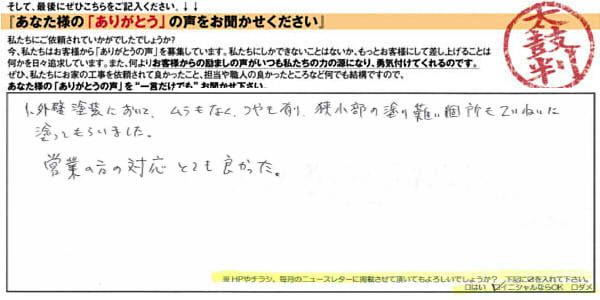 そして、最後にぜひこちらをご記入ください。↓↓
『あなた様の「ありがとう」の声をお聞かせください』
私たちにご依頼されていかがでしたでしょうか?
今、私たちはお客様から「ありがとうの声」を募集しています。私たちにしかできないことはないか、もっとお客様にして差し上げることは
何かを日々追求しています。また、何よりお客様からの励ましの声がいつも私たちの力の源になり、勇気付けてくれるのです。
ぜひ、私たちにお家の工事を依頼されて良かったこと、担当や職人の良かったところなど何でも結構ですので、
あなた様の「ありがとうの声」を“一言だけでも”お聞かせ下さい。
太鼓判
1、外壁塗装において、ムラもなく、つやも有り、狭小部の塗り難い個所もていねいに
塗ってもらいました。
営業の方の対応とても良かった。
※HPやチラシ、毎月のニュースレターに掲載させて頂いてもよろしいでしょうか? 下記に☑を入れて下さい。
□はい ☑イニシャルならOK □ダメ